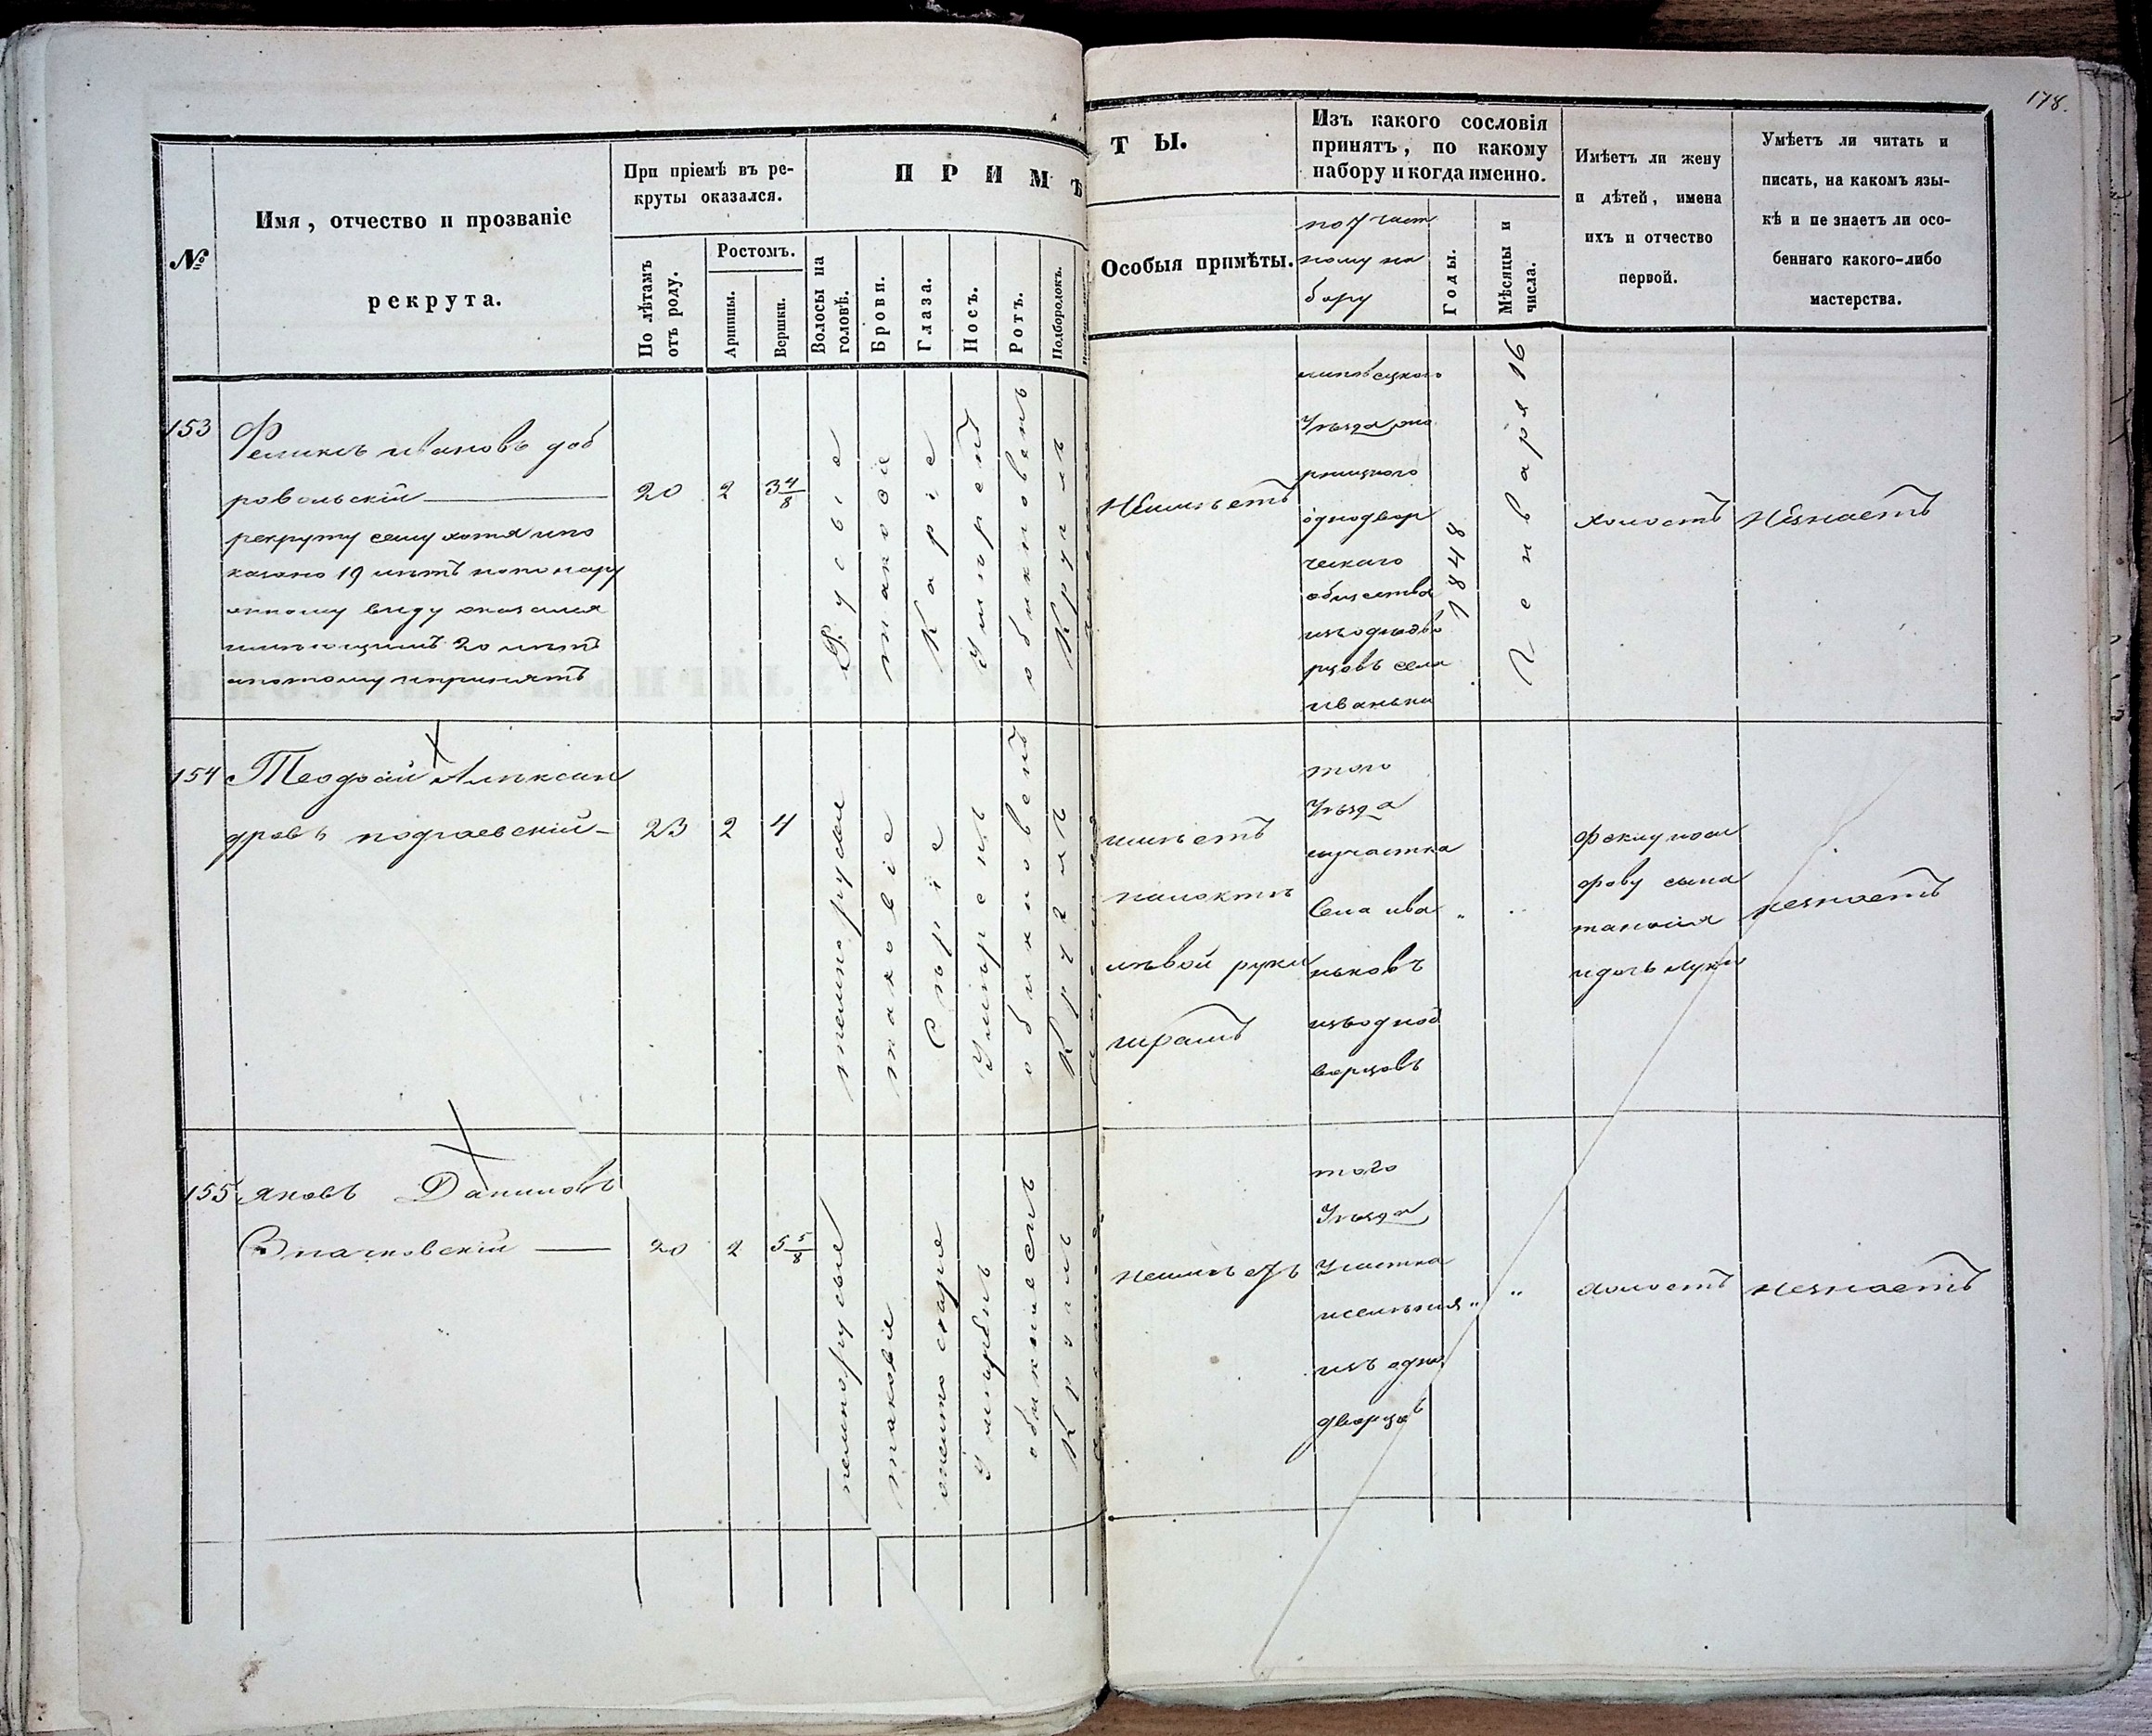 178.
№
Имя, отчество и прозваніе
рекрута.
При пріемѣ въ ре-
круты оказался.
По лѣтамъ
отъ роду.
Ростомъ.
Аршины.
Вершки.
П Р И М Ѣ
Волосы на
головѣ.
Брови.
Глаза.
Носъ.
Ротъ.
Подбородокъ.
Т Ы.
Особыя примѣты.
Изъ какого сословія
принятъ, по какому
набору и когда именно.
по 7 част
ному на
бору
Годы.
Мѣсяцы и
числа.
Имѣетъ ли жену
и дѣтей, имена
ихъ и отчество
первой.
Умѣетъ ли читать и
писать, на какомъ язы-
кѣ и не знаетъ ли осо-
беннаго какого-либо
мастерства.
153
Феликсъ ивановъ доб
ровольскій
рекруту сему хотя и по
казано 19 лѣтъ но по нару
жному виду оказался
имѣющимъ 20 лѣтъ
а потому и принятъ
20
2
3 4/8
Русые
таковые
Каріе
Умѣренъ
обыкновенъ
Круглъ
Неимѣетъ
липовецкаго
Уѣзда
однодвор
ческаго
общества
изъ однодво
рцовъ села
иваньки
1848
Генваря 16
холостъ
Незнаетъ
154
Теодозій Алексан
дровъ подгаевскій
23
2
4
темнорусыя
таковіе
Сѣріе
Умѣренъ
обыкновенъ
Круглъ
имѣетъ
налоктѣ
лѣвой руки
шрамъ
того
Уѣзда
иучастка
Села ива
ньковъ
изъ однод
ворцовъ
"
феклу
сына
и дочь
незнаетъ
155
яковъ Даниловъ
20
2
5 5/8
темнорусыя
таковія
Умѣренъ
Круглъ
неимѣетъ
того
Уѣзда
Участка
изъ одно
дворцовъ
"
"
холостъ
незнаетъ